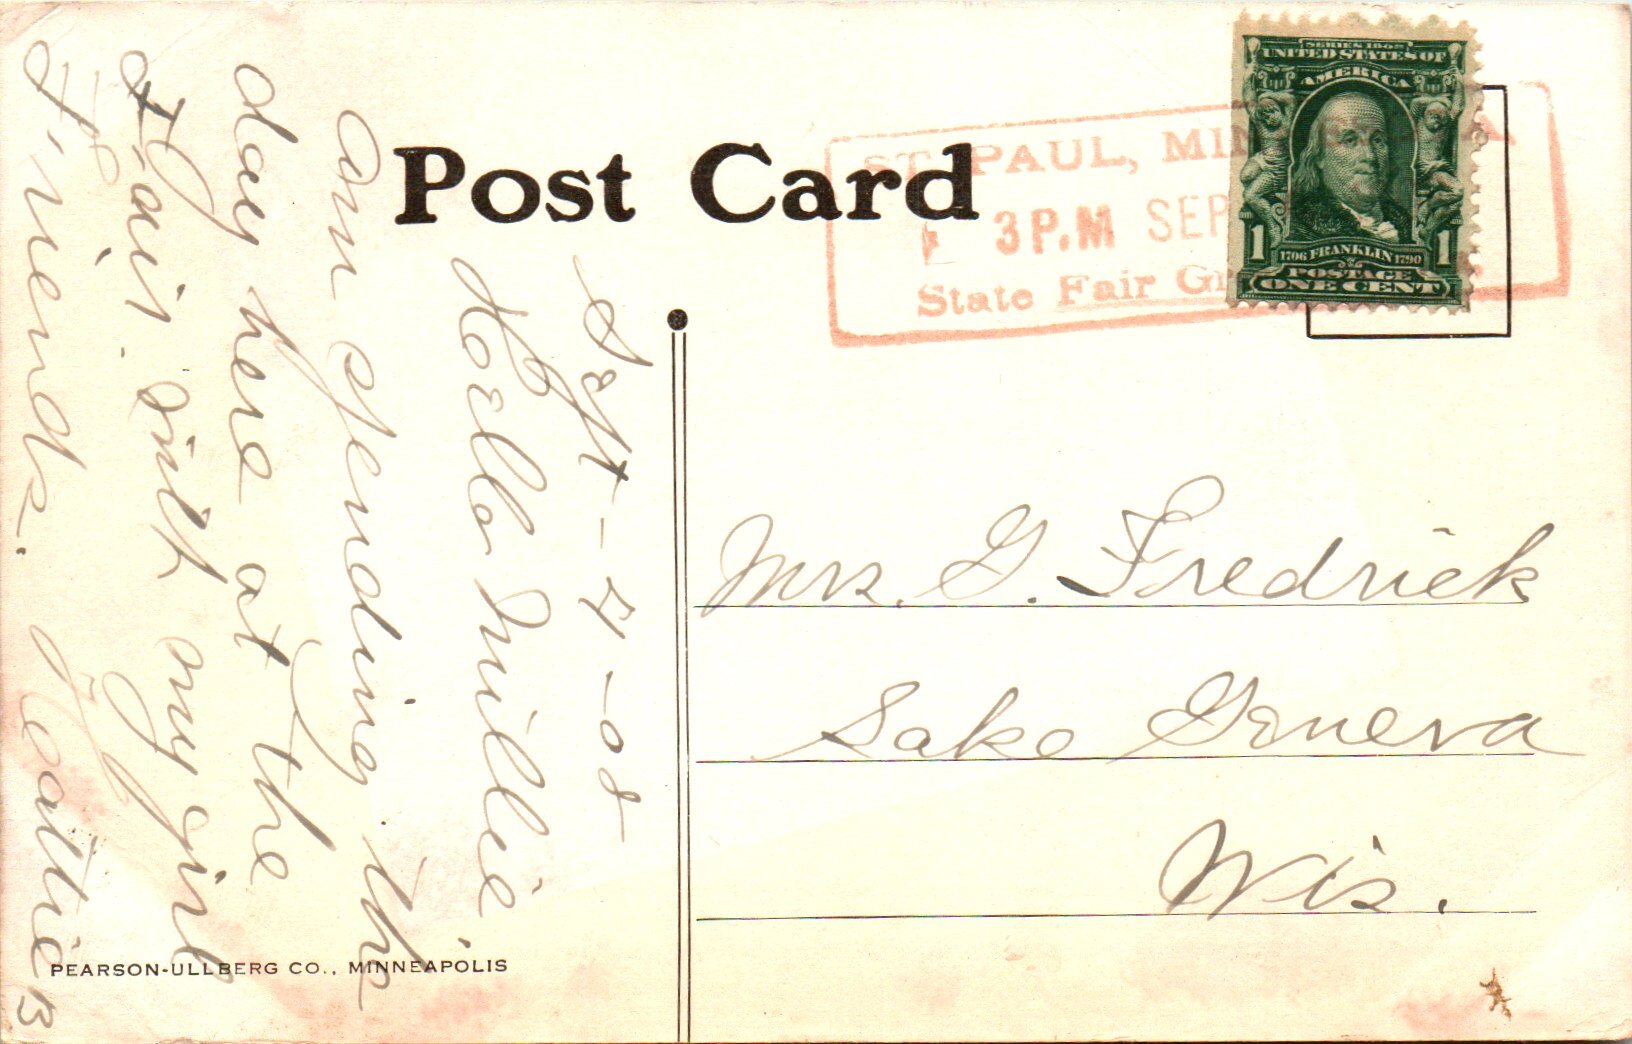 Post Card
ST. PAUL, MIN A
3 P.M SEP
State Fair Gr
SERIES 1902
UNITED STATES OF
AMERICA
1 1
1706 FRANKLIN 1790
POSTAGE
ONE CENT
Sept - 4 - 08
Hello Millie
am spending the
day here at the
Fair with my girl
Friends.
B
Mrs. G. Fredrick
Lake Geneva
Wis.
PEARSON-ULLBERG CO., MINNEAPOLIS